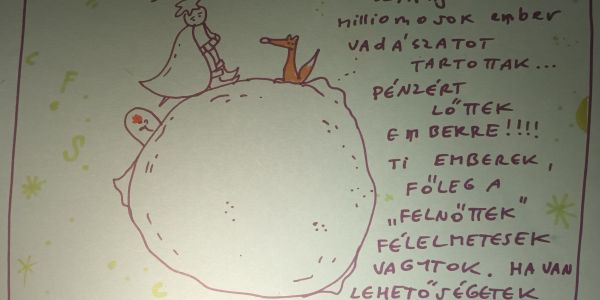 milliomosok ember
VADÁSZATOT
TARTOTTAK...
PÉNZÉRT
LŐTTEK
EMBERRE!!!!
TI EMBEREK,
FŐLEG A
„FELNŐTTEK"
FÉLELMETESEK
VAGYTOK. HA VAN
LEHETŐSÉGETEK